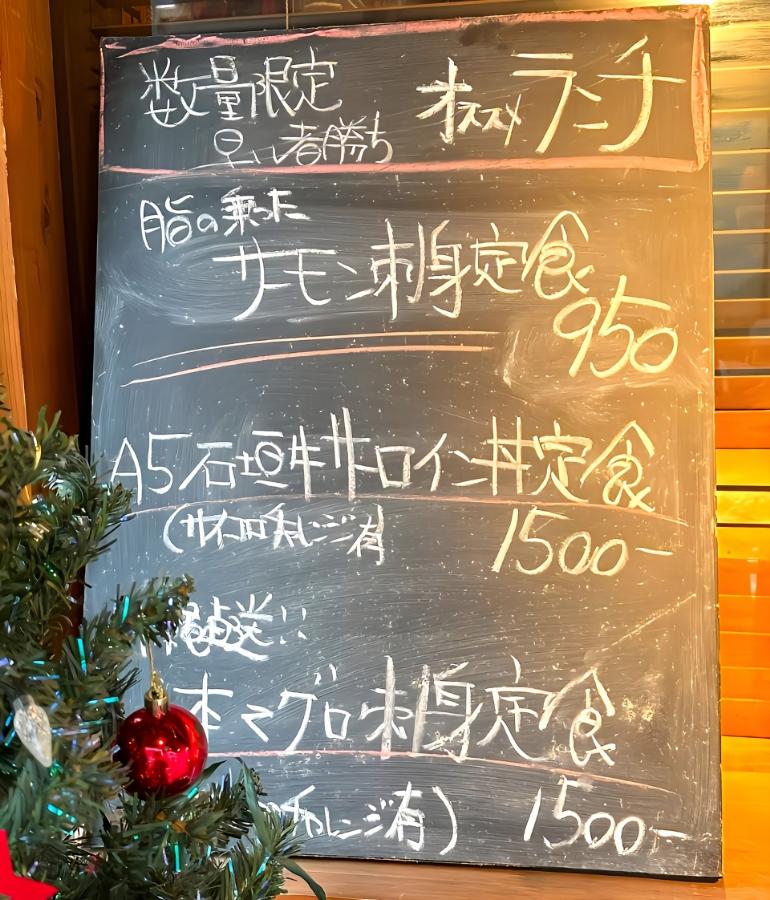 数量限定 オススメランチ
早い者勝ち
脂の乗った
サーモン刺身定食
950
A5石垣牛サーロイン丼定食
(サイコロチャレンジ有 1500-
直送!!
本マグロ刺身定食
チャレンジ有) 1500-